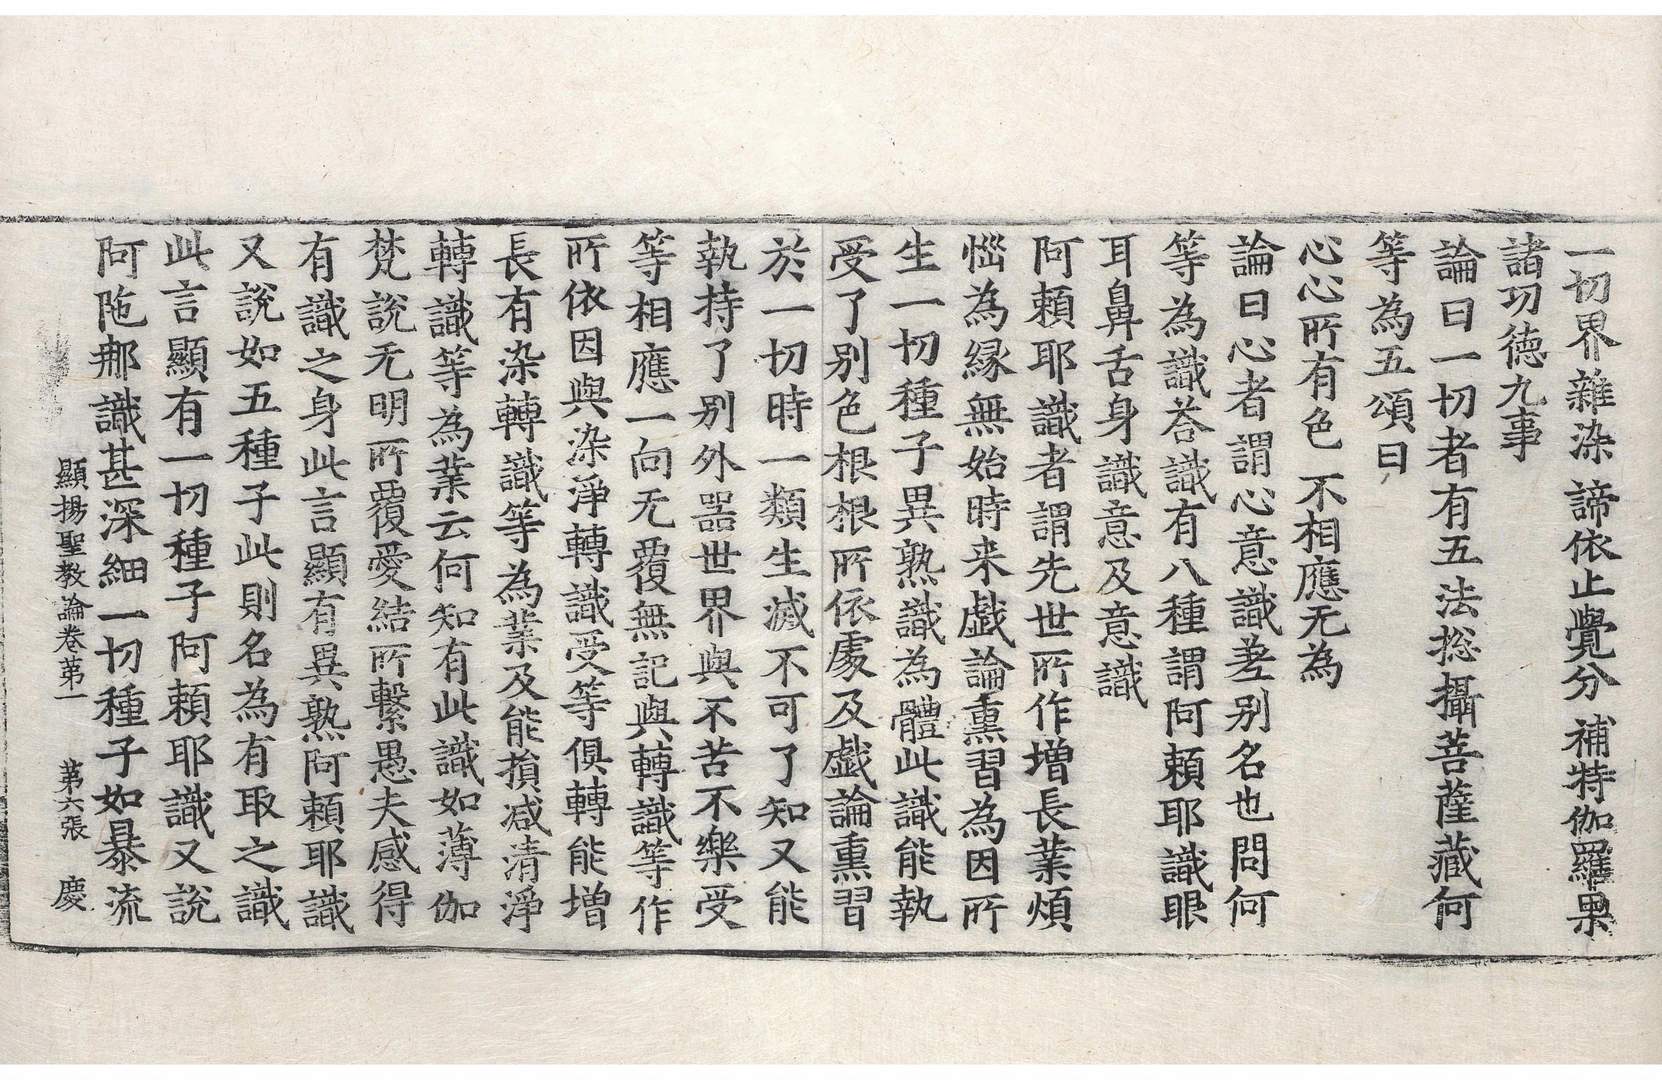 一切界雜染 諦依止覺分 補特伽羅果
諸功德九事
論曰一切者有五法捴攝菩薩藏何
等為五頌曰
心心所有色 不相應无為
論曰心者謂心意識差别名也問何
等為識荅識有八種謂阿頼耶識眼
耳鼻舌身識意及意識
阿頼耶識者謂先世所作增長業煩
惱為縁無始時来戱論熏習為因所
生一切種子異熟識為體此識能執
受了别色根根所依處及戱論熏習
於一切時一類生滅不可了知又能
執持了别外噐世界與不苦不樂受
等相應一向无覆無記與轉識等作
所依因與染淨轉識受等俱轉能增
長有染轉識等為業及能損减清淨
轉識等為業云何知有此識如薄伽
梵說无明所覆愛結所繫愚夫感得
有識之身此言顯有異熟阿頼耶識
又說如五種子此則名為有取之識
此言顯有一切種子阿頼耶識又說
阿陁那識甚深細一切種子如暴流
顯揚聖教論卷第一 第六張 慶